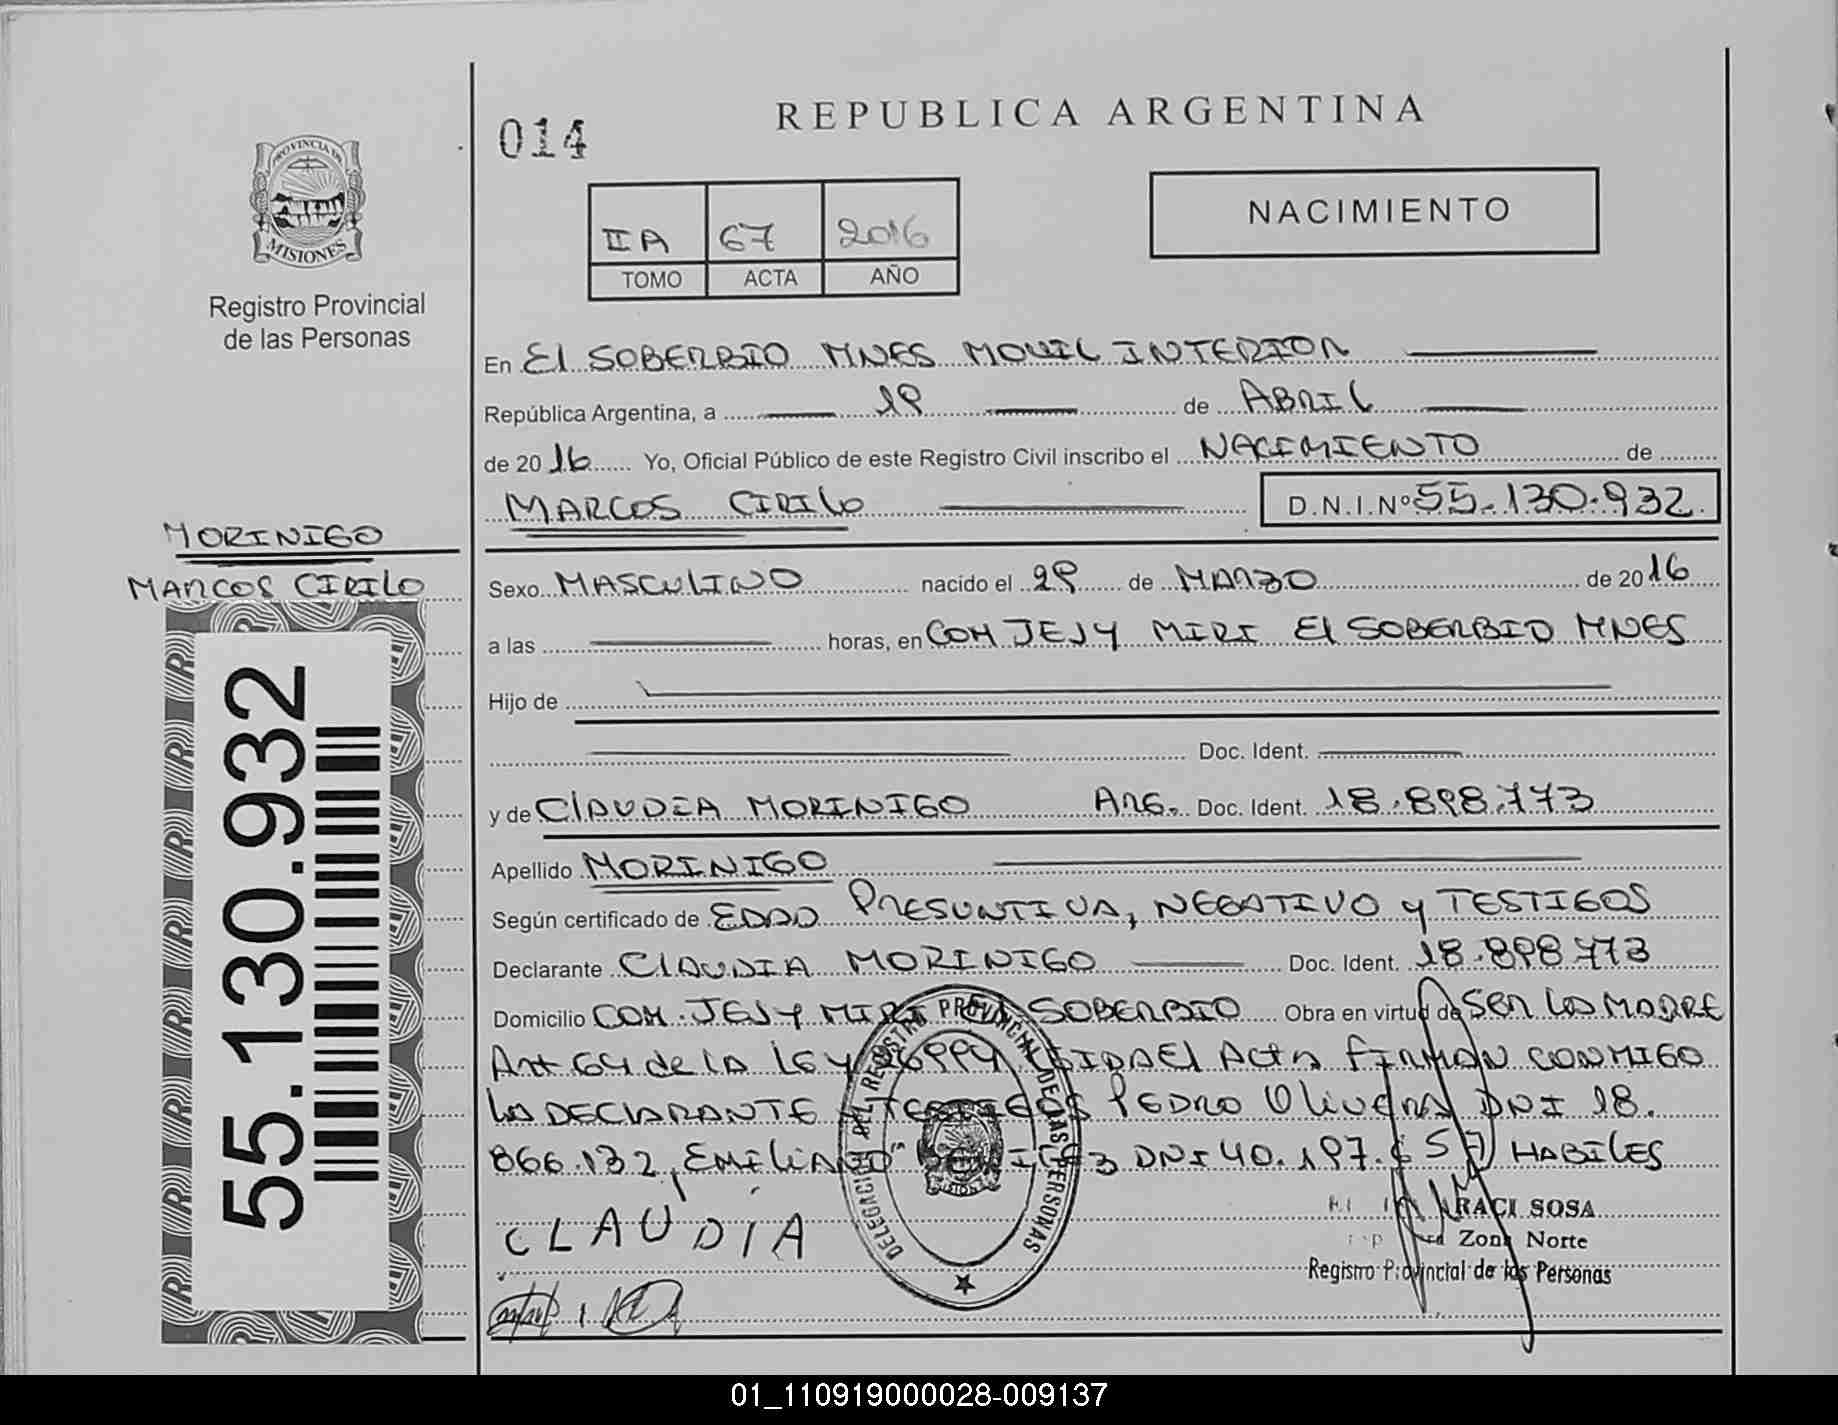 014
REPUBLICA ARGENTINA
PROVINCIA DE
MISIONES
Registro Provincial
de las Personas
IIA 67 2016
TOMO ACTA AÑO
NACIMIENTO
En El SOBERBIO MNES MOVIL INTERIOR
República Argentina, a 19 de ABRIL
de 2016 Yo, Oficial Público de este Registro Civil inscribo el NACIMIENTO de
MARCOS CIRILO D.N.I.Nº 55.130.932
MORINIGO
MARCOS CIRILO
55.130.932
Sexo MASCULINO nacido el 29 de MARZO de 2016
a las horas, en COM JEJY MIRI El SOBERBIO MNES
Hijo de
Doc. Ident.
y de ClAUDIA MORINIGO ARG. Doc. Ident. 18.898.773
Apellido MORINIGO
Según certificado de EDAD PRESUNTIVA, NEGATIVO y TESTIGOS
Declarante ClAUDIA MORINIGO Doc. Ident. 18.898.773
Domicilio COM. JEJY MIRI El SOBERBIO Obra en virtud de SER LA MADRE
Art 64 de lA lEY 26994 lEIDA El Acta FIRMAN CONMIGO
LA DEClARANTE TESTIGOS PEDRO OlIVERA DNI 18.
866.132, EMIliANO DNI 40.197. HABILES
CLAUDIA
DELEGACION DEL REGISTRO PROVINCIAL DE LAS PERSONAS
ARACI SOSA
Zona Norte
Registro Provincial de las Personas
01_110919000028-009137